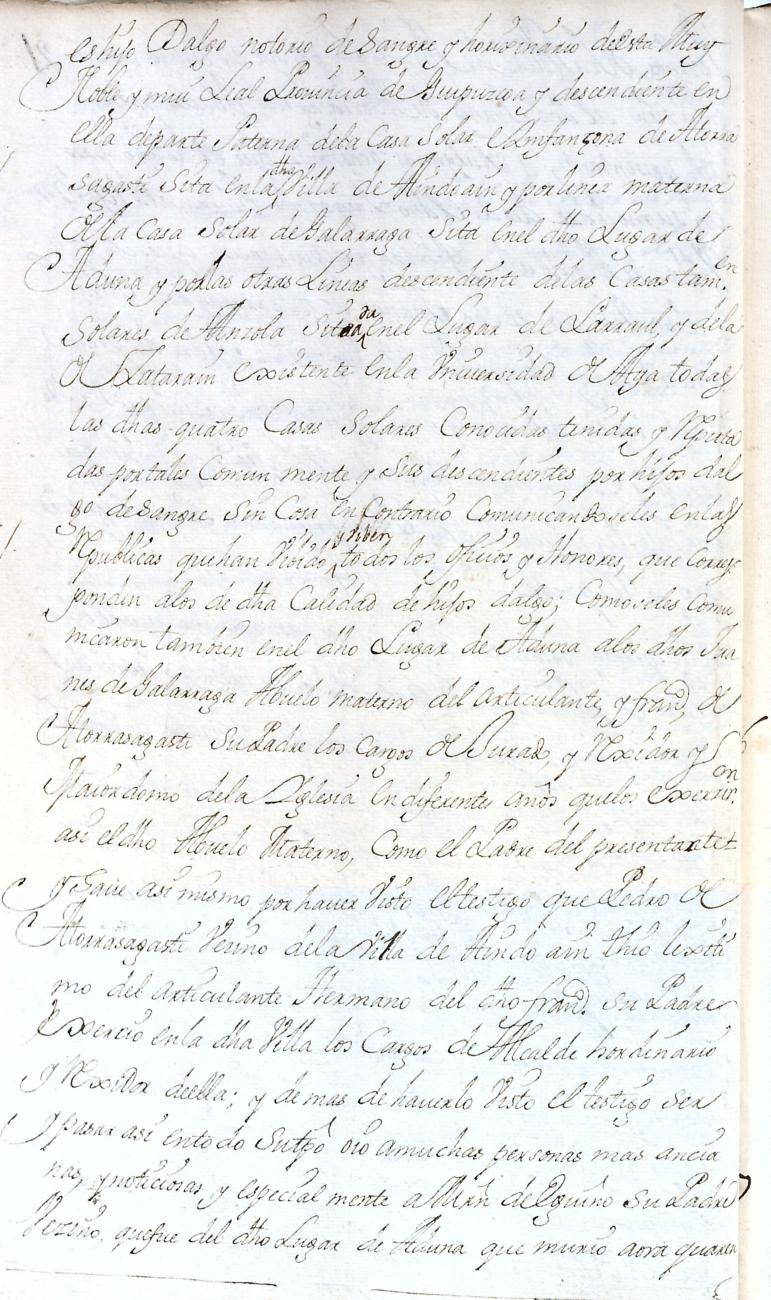 es hijo Dalgo notorio de Sangre y horixinario de esta Muy
Noble y mui Leal Provincia de Guipuzcoa y descendiente en
ella de parte Paterna dela Casa Solar e Ynfanzona de Atorra
sagasti Sita en la dha Villa de Aindoain y por linea materna
de la Casa Solar de Galarraga Sita en el dho Lugar de
Aduna y por las otras Lineas descendiente delas Casas tam.en
Solares de Ainzola Sitada en el Lugar de Larraul, y dela
de Zatarain existente en la Universidad de Aya todas
las dhas quatro Casas Solares Conocidas tenidas y Reputa
das por tales Comun mente y sus descendientes por hijos dal
go de Sangre sin Cosa en Contrario Comunicandoseles en las
Republicas que han Vibido y viben todos los oficios y Honores, que Corres
ponden alos de dha Calidad de hijos dalgo; Como seles Comu
nicaron tambien en el dho Lugar de Aduna a los dhos Jua
nes de Galarraga Abuelo materno del articulante, y fran.co de
Atorrasagasti Su Padre los Cargos de Jurado, y Rexidor y
Maiordomo dela Yglesia en diferentes años que los exercier.on
asi el dho Abuelo Materno, Como el Padre del presentante
y Save asi mismo por haver Visto el testigo que Pedro de
Atorrasagasti Vecino dela Villa de Aindoain thio lexiti
mo del articulante Hermano del dho fran.co su Padre
Exercio en la dha Villa los Cargos de Alcalde hordinario
y Rexidor de ella; y de mas de haverlo Visto el testigo ser
y pasar asi en todo Su tpo oio a muchas personas mas ancia
nas, y noticiosas, y especial mente a Mrn de Eguino su Padre
Vezino, que fue del dho Lugar de Aduna que murio aora quaren